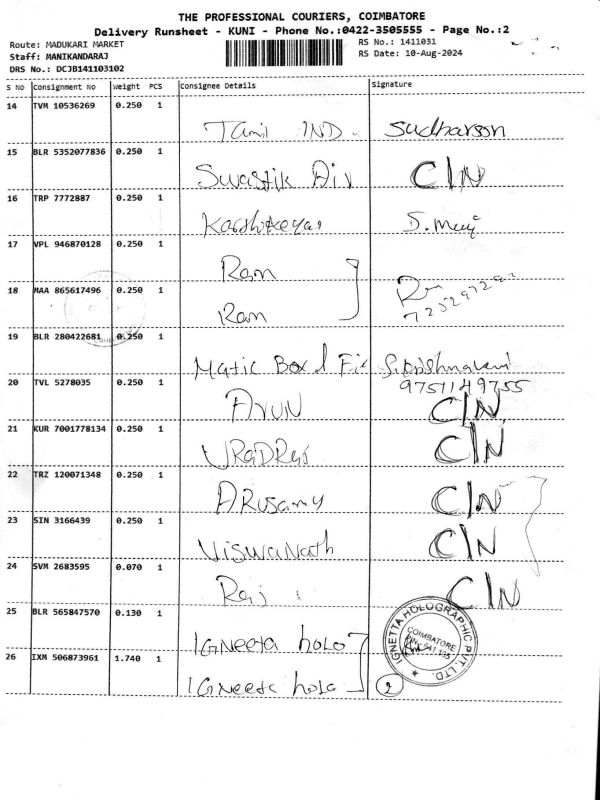 THE PROFESSIONAL COURIERS, COIMBATORE
Delivery Runsheet - KUNI - Phone No.:0422-3505555 - Page No.:2
Route: MADUKARI MARKET RS No.: 1411031
Staff: MANIKANDARAJ RS Date: 10-Aug-2024
DRS No.: DCJB141103102
S No Consignment No Weight PCS Consignee Details Signature
14 TVM 10536269 0.250 1
Tamil IND. Sudharson
15 BLR 5352077836 0.250 1
Swastik Div C/N
16 TRP 7772887 0.250 1
Karthikeyan
17 VPL 946870128 0.250 1
Ram
18 MAA 865617496 0.250 1
Ram
19 BLR 280422681 0.250 1
Matic Box
20 TVL 5278035 0.250 1 9751149755
Arun C/N
21 KUR 7001778134 0.250 1
C/N
22 TRZ 120071348 0.250 1
ARUSamy C/N
23 SIN 3166439 0.250 1
Viswanath C/N
24 SVM 2683595 0.070 1
Raj C/N
25 BLR 565847570 0.130 1
IGNeeta holo
IGNETTA HOLOGRAPHIC PVT. LTD.
COIMBATORE
26 IXM 506873961 1.740 1
IGNeeta holo 2